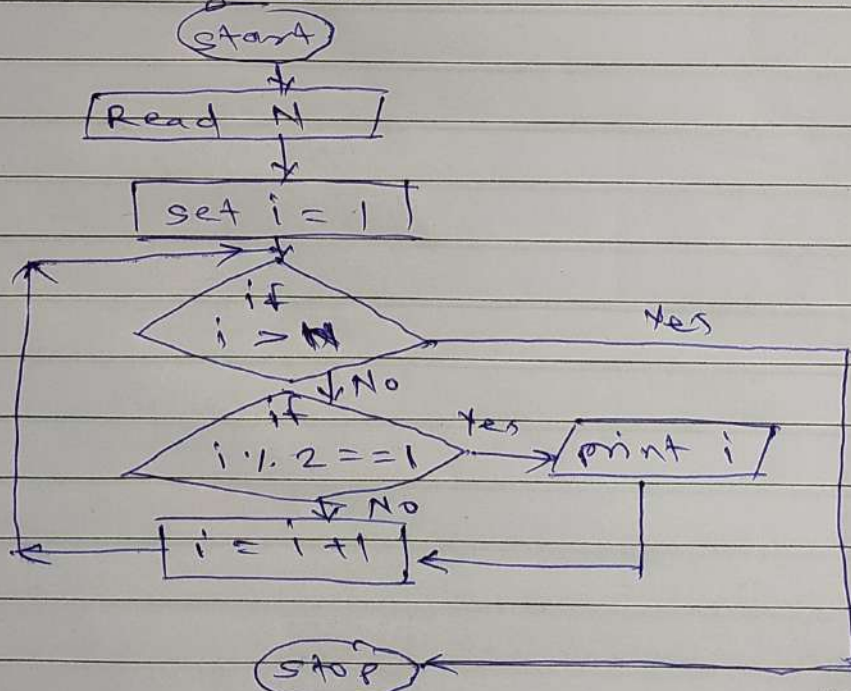 start
Read N
set i = 1
if
i > N
Yes
No
if
i % 2 == 1
Yes
print i
No
i = i + 1
stop